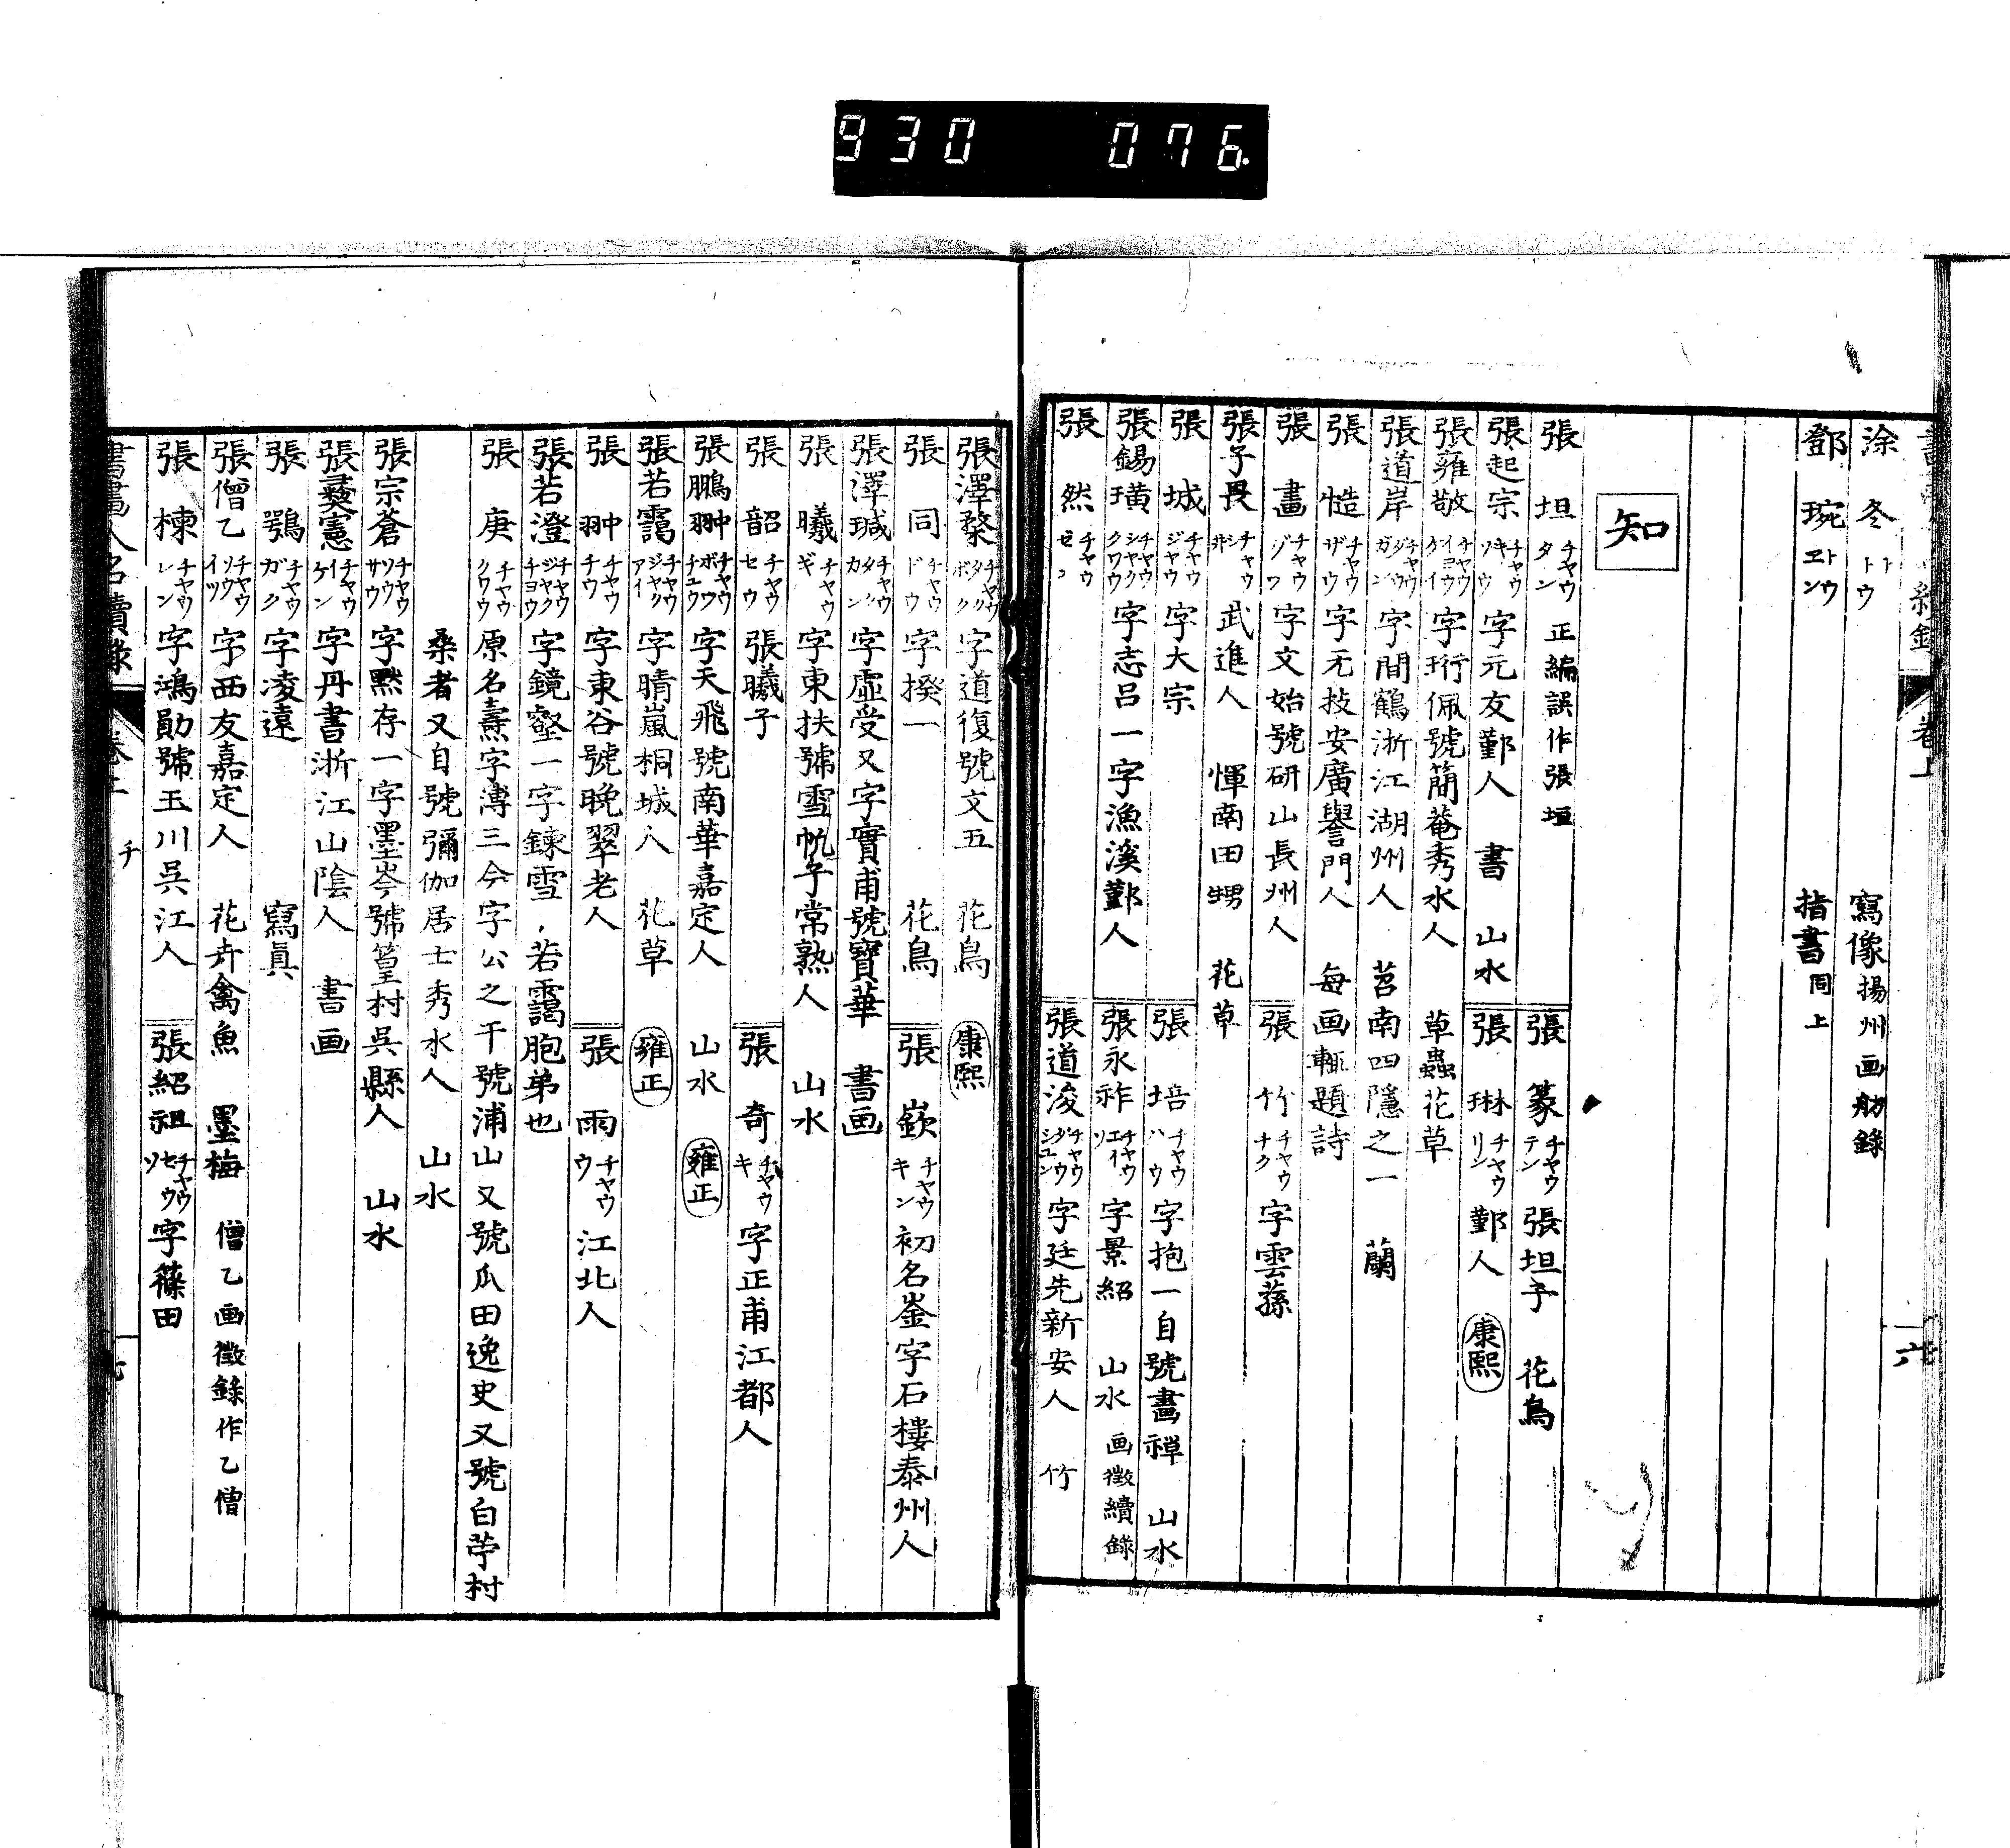 930 076
涂冬 トトウ 寫像 揚州画舫錄
鄧琬 トウヱン 指書 同上
知
張坦 チャウタン 正編誤作張垣
張篆 チャウテン 張坦子 花鳥
張起宗 チャウキソウ 字元友鄞人 書 山水
張琳 チャウリン 鄞人 康熙
張雍敬 チャウヨウケイ 字珩佩號簡菴秀水人 草蟲花草
張道岸 チャウダウガン 字間鶴浙江湖州人 苕南四隱之一 蘭
張慥 チャウザウ 字无技安廣譽門人 每画輒題詩
張畫 チャウグワ 字文始號研山長州人
張竹 チャウチク 字雲蓀
張子畏 チャウシ井 武進人 惲南田甥 花草
張城 チャウジャウ 字大宗
張培 チャウハウ 字抱一自號畫禅 山水
張錫璜 チャウシャククワウ 字志呂一字漁溪鄞人
張永祚 チャウエイソ 字景紹 山水 画徵續錄
張然 チャウゼン
張道浚 チャウダウシユン 字廷先新安人 竹
張澤楘 チャウタクボク 字道復號文五 花鳥 康熙
張同 チャウドウ 字揆一 花鳥
張嶔 チャウキン 初名崟字石樓泰州人
張澤瑊 チャウタクカン 字虛受又字實甫號寶華 書画
張曦 チャウギ 字東扶號雪帆子常熟人 山水
張韶 チャウセウ 張曦子
張奇 チャウキ 字正甫江都人
張鵬翀 チャウボウチユウ 字天飛號南華嘉定人 山水 雍正
張若靄 チャウジャクアイ 字晴嵐桐城人 花草 雍正
張翀 チャウチウ 字東谷號晚翠老人
張雨 チャウウ 江北人
張若澄 チャウジャクチヨウ 字鏡壑一字鍊雪 若靄胞弟也
張庚 チャウクワウ 原名燾字溥三今字公之干號浦山又號瓜田逸史又號白苧村
桑者又自號彌伽居士秀水人 山水
張宗蒼 チャウソウサウ 字默存一字墨岑號篁村吳縣人 山水
張彝憲 チャウイケン 字丹書浙江山陰人 書画
張鶚 チャウガク 字凌遠 寫真
張僧乙 チャウソウイツ 字西友嘉定人 花卉禽魚 墨梅 僧乙画徵錄作乙僧
張楝 チャウレン 字鴻勛號玉川吳江人
張紹祖 チャウセウソ 字篠田
書畫人名續錄 卷上 チ